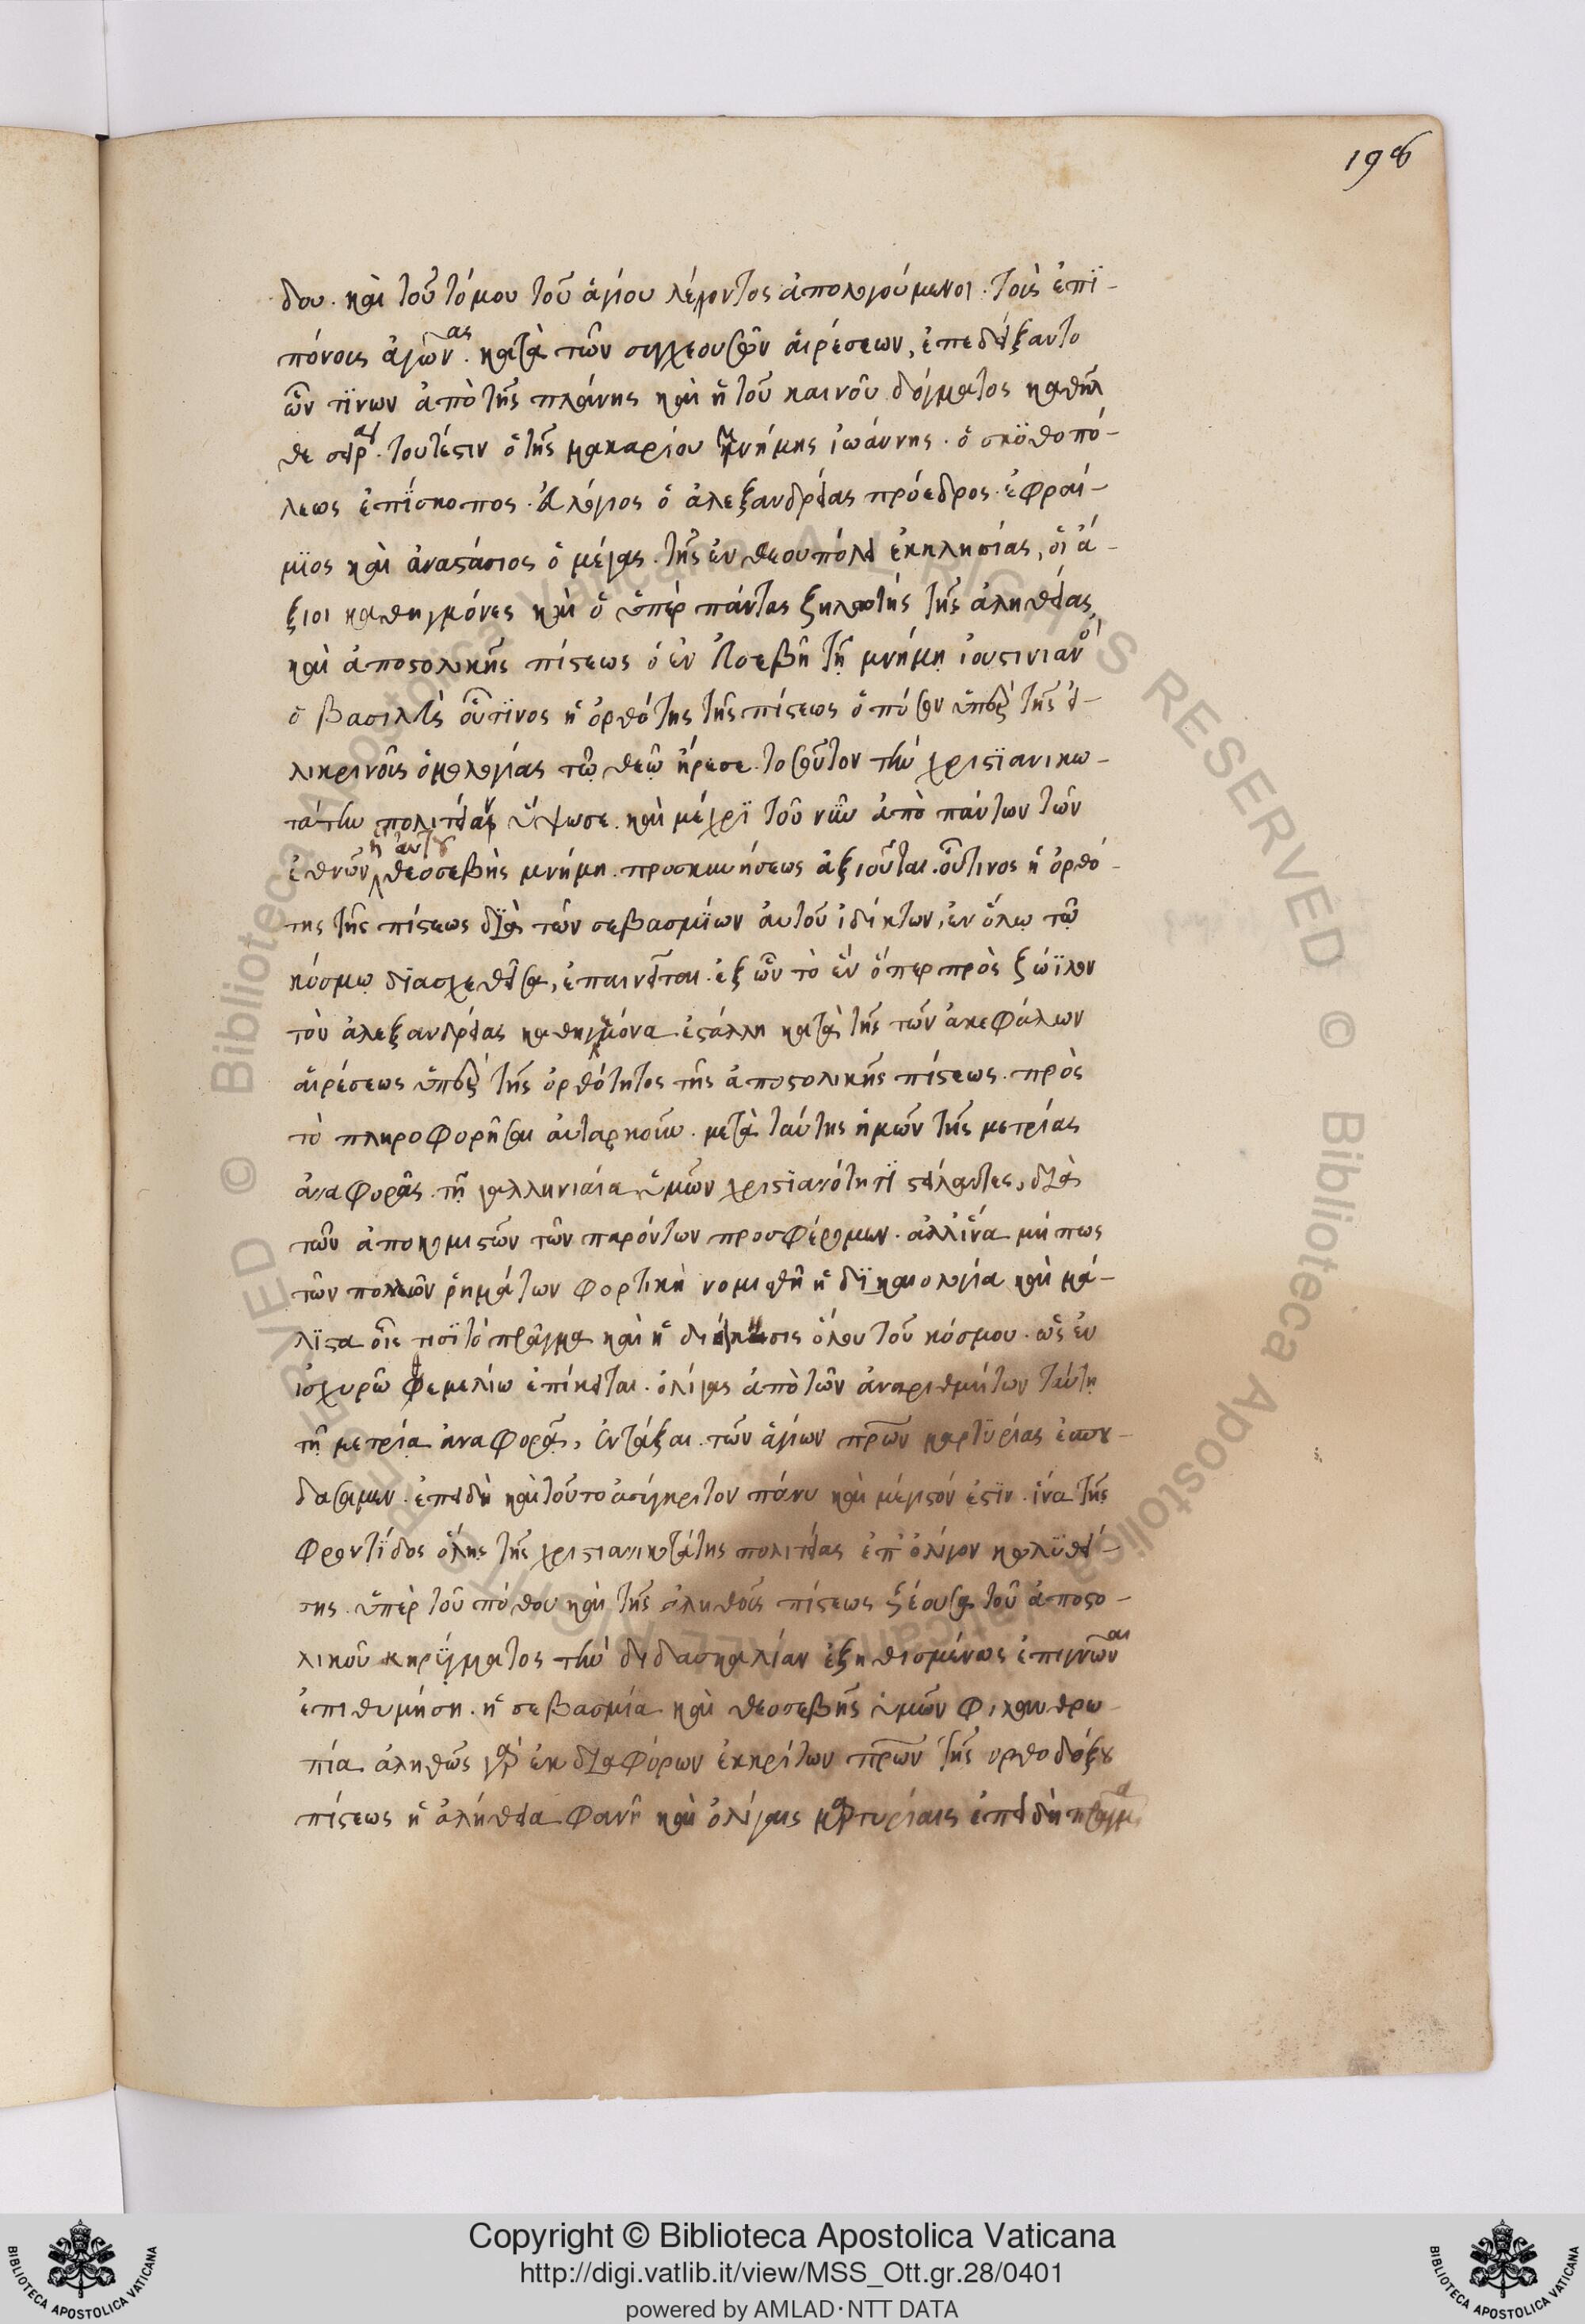 198
δου. καὶ τοῦ τόμου τοῦ ἁγίου λέοντος ἀπολογούμενοι. τοὺς ἐπϊ-
πόνους ἀγῶνας. κατὰ τῶν συγχεουσῶν αἱρέσεων, ἐπεδείξαντο
ὧν τϊνων ἀπὸ τῆς πλάνης καὶ ἡ τοῦ καινοῦ δόγματος
τουτέστιν ὁ τῆς μακαρίου μνήμης ἰωάννης. ὁ σκϋθοπό-
λεως ἐπΐσκοπος. εὐλόγιος ὁ ἀλεξανδρείας πρόεδρος. ἐφραί-
μϊος καὶ ἀναστάσιος ὁ μέγας. τῆς ἐν θεουπόλει ἐκκλησίας, οἱ ἄ-
ξιοι καθηγμόνες καὶ ὁ ὑπὲρ πάντας ζηλωτὴς τῆς ἀληθείας
καὶ ἀποστολικῆς πίστεως ὁ ἐν εὐσεβῆ τῇ μνήμῃ ἰουστινιανὸς
ὁ βασιλεὺς οὗτϊνος ἡ ὀρθότης τῆς πίστεως ὁπόσον ὑπὲρ τῆς εἰ-
λικρινοῦς ὁμολογίας τῷ θεῷ ἤρεσε. τοσοῦτον τὴν χριστϊανικω-
τάτην πολιτείαν ὕψωσε. καὶ μέχρϊ τοῦ νῦν ἀπὸ πάντων τῶν
ἐθνῶν ἡ αὐτοῦ θεοσεβὴς μνήμη. προσκυνήσεως ἀξιοῦται. οὗτινος ἡ ὀρθό-
της τῆς πίστεως διὰ τῶν σεβασμΐων αὐτοῦ ἰδίκτων, ἐν ὅλῳ τῷ
κόσμῳ δϊασχεθεῖσα, ἐπαινεῖται. ἐξ ὧν τὸ ἓν ὅπερ πρὸς ζώϊλον
τὸν ἀλεξανδρείας καθηγμόνα ἐστάλλη κατὰ τῆς τῶν ἀκεφάλων
αἱρέσεως ὑπὲρ τῆς ὀρθότητος τῆς ἀποστολικῆς πίστεως. πρὸς
τὸ πληροφορῆσαι αὐταρκοῦν. μετὰ ταύτης ἡμῶν τῆς μετρίας
ἀναφορᾶς. τῇ γαλληνιαία ὑμῶν χριστϊανότητϊ στείλαντες, διὰ
τῶν ἀποκομιστῶν τῶν παρόντων προσφέρομεν. ἀλλ' ἵνα μή πως
τῶν πολλῶν ῥημάτων φορτικὴ νομισθῆ ἡ δϊκαιολογία καὶ μά-
λϊστα οἷς τισϊ τὸ πρᾶγμα καὶ ἡ διοίκησις ὅλου τοῦ κόσμου. ὡς ἐν
ἰσχυρῶ θεμελίω ἐπίκειται. ὀλίγας ἀπὸ τῶν ἀναριθμήτων ταύτῃ
τῇ μετρίᾳ ἀναφορᾷ, ἐντάξαι. τῶν ἁγίων πρων μαρτϋρίας ἐσπου-
δάσαμεν. ἐπειδὴ καὶ τοῦτο ἀσύγκριτον πάνυ καὶ μέγιστόν ἐστϊν. ἵνα τῆς
φροντΐδος ὅλης τῆς χριστιανικωτάτης πολιτείας ἐπ' ὀλίγον κωλϋθεί-
σης. ὑπὲρ τοῦ πόθου καὶ τῆς ἀληθοῦς πίστεως ζέουσα τοῦ ἀποστο-
λικοῦ κηρΰγματος τὴν διδασκαλίαν ἐξηθισμένως ἐπιγνῶναι
ἐπιθυμήση. ἡ σεβασμία καὶ θεοσεβὴς ὑμῶν φιλανθρω-
πία ἀληθῶς γὰρ ἐκ διαφόρων ἐκκρίτων πρων τῆς ὀρθοδόξου
πίστεως ἡ ἀλήθεια φανῆ καὶ ὀλίγαις μαρτυρίαις ἐπειδὴ
Copyright © Biblioteca Apostolica Vaticana
http://digi.vatlib.it/view/MSS_Ott.gr.28/0401
powered by AMLAD·NTT DATA